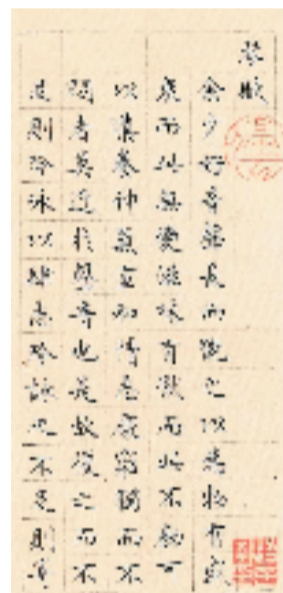 琴賦
余少好音聲長而翫之以為物有盛
衰而此無變滋味有猒而此不勌可
以導養神氣宣和情志處窮獨而不
悶者莫近於音聲也是故復之而不
足則吟詠以肆志吟詠之不足則寄